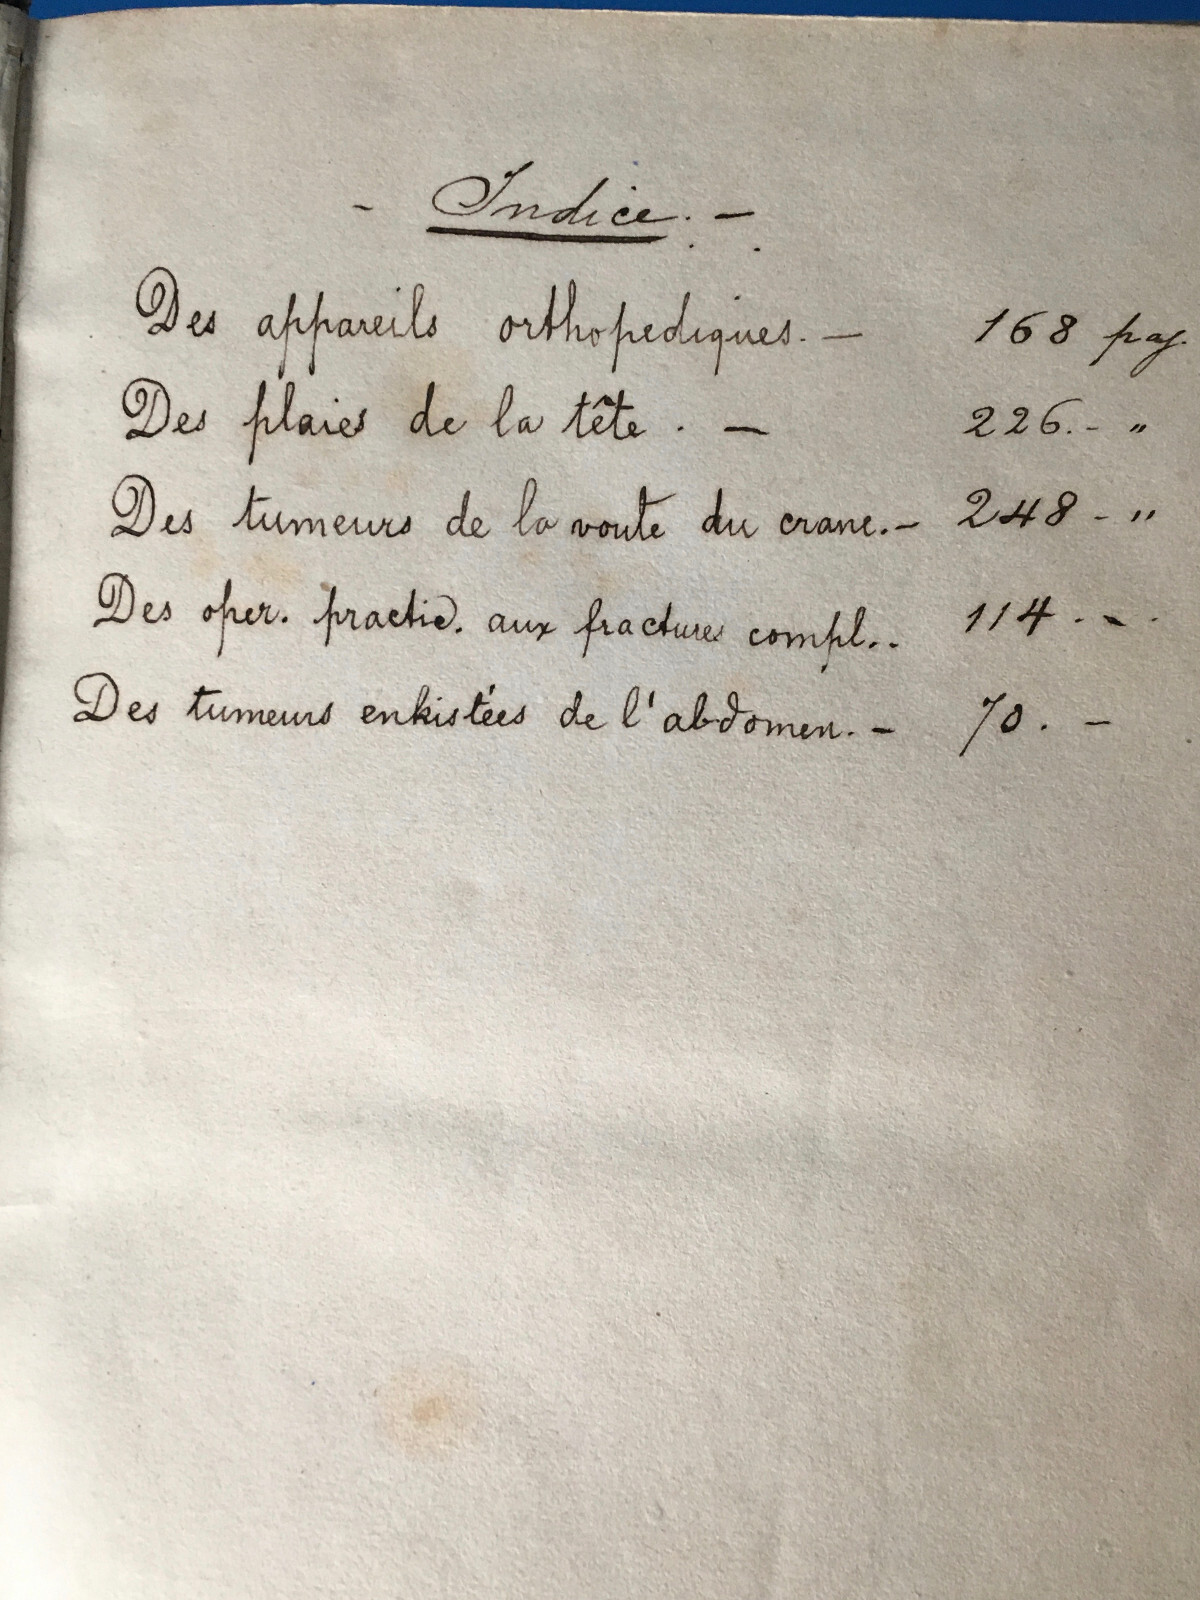 - Indice. -
Des appareils orthopediques. - 168 pag.
Des plaies de la tête. - 226. - "
Des tumeurs de la voute du crane. - 248 - "
Des oper. practic. aux fractures compl.. 114. -.
Des tumeurs enkistées de l'abdomen. - 70. -